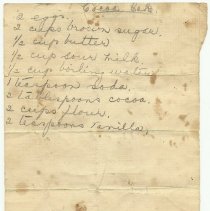 Cocoa Cake
2 eggs.
2 cups brown sugar.
1/2 cup butter
1/2 cup sour milk
1/2 cup boiling water
1 teaspoon soda,
2 tablespoons cocoa.
2 cups flour,
2 teaspoons vanilla,